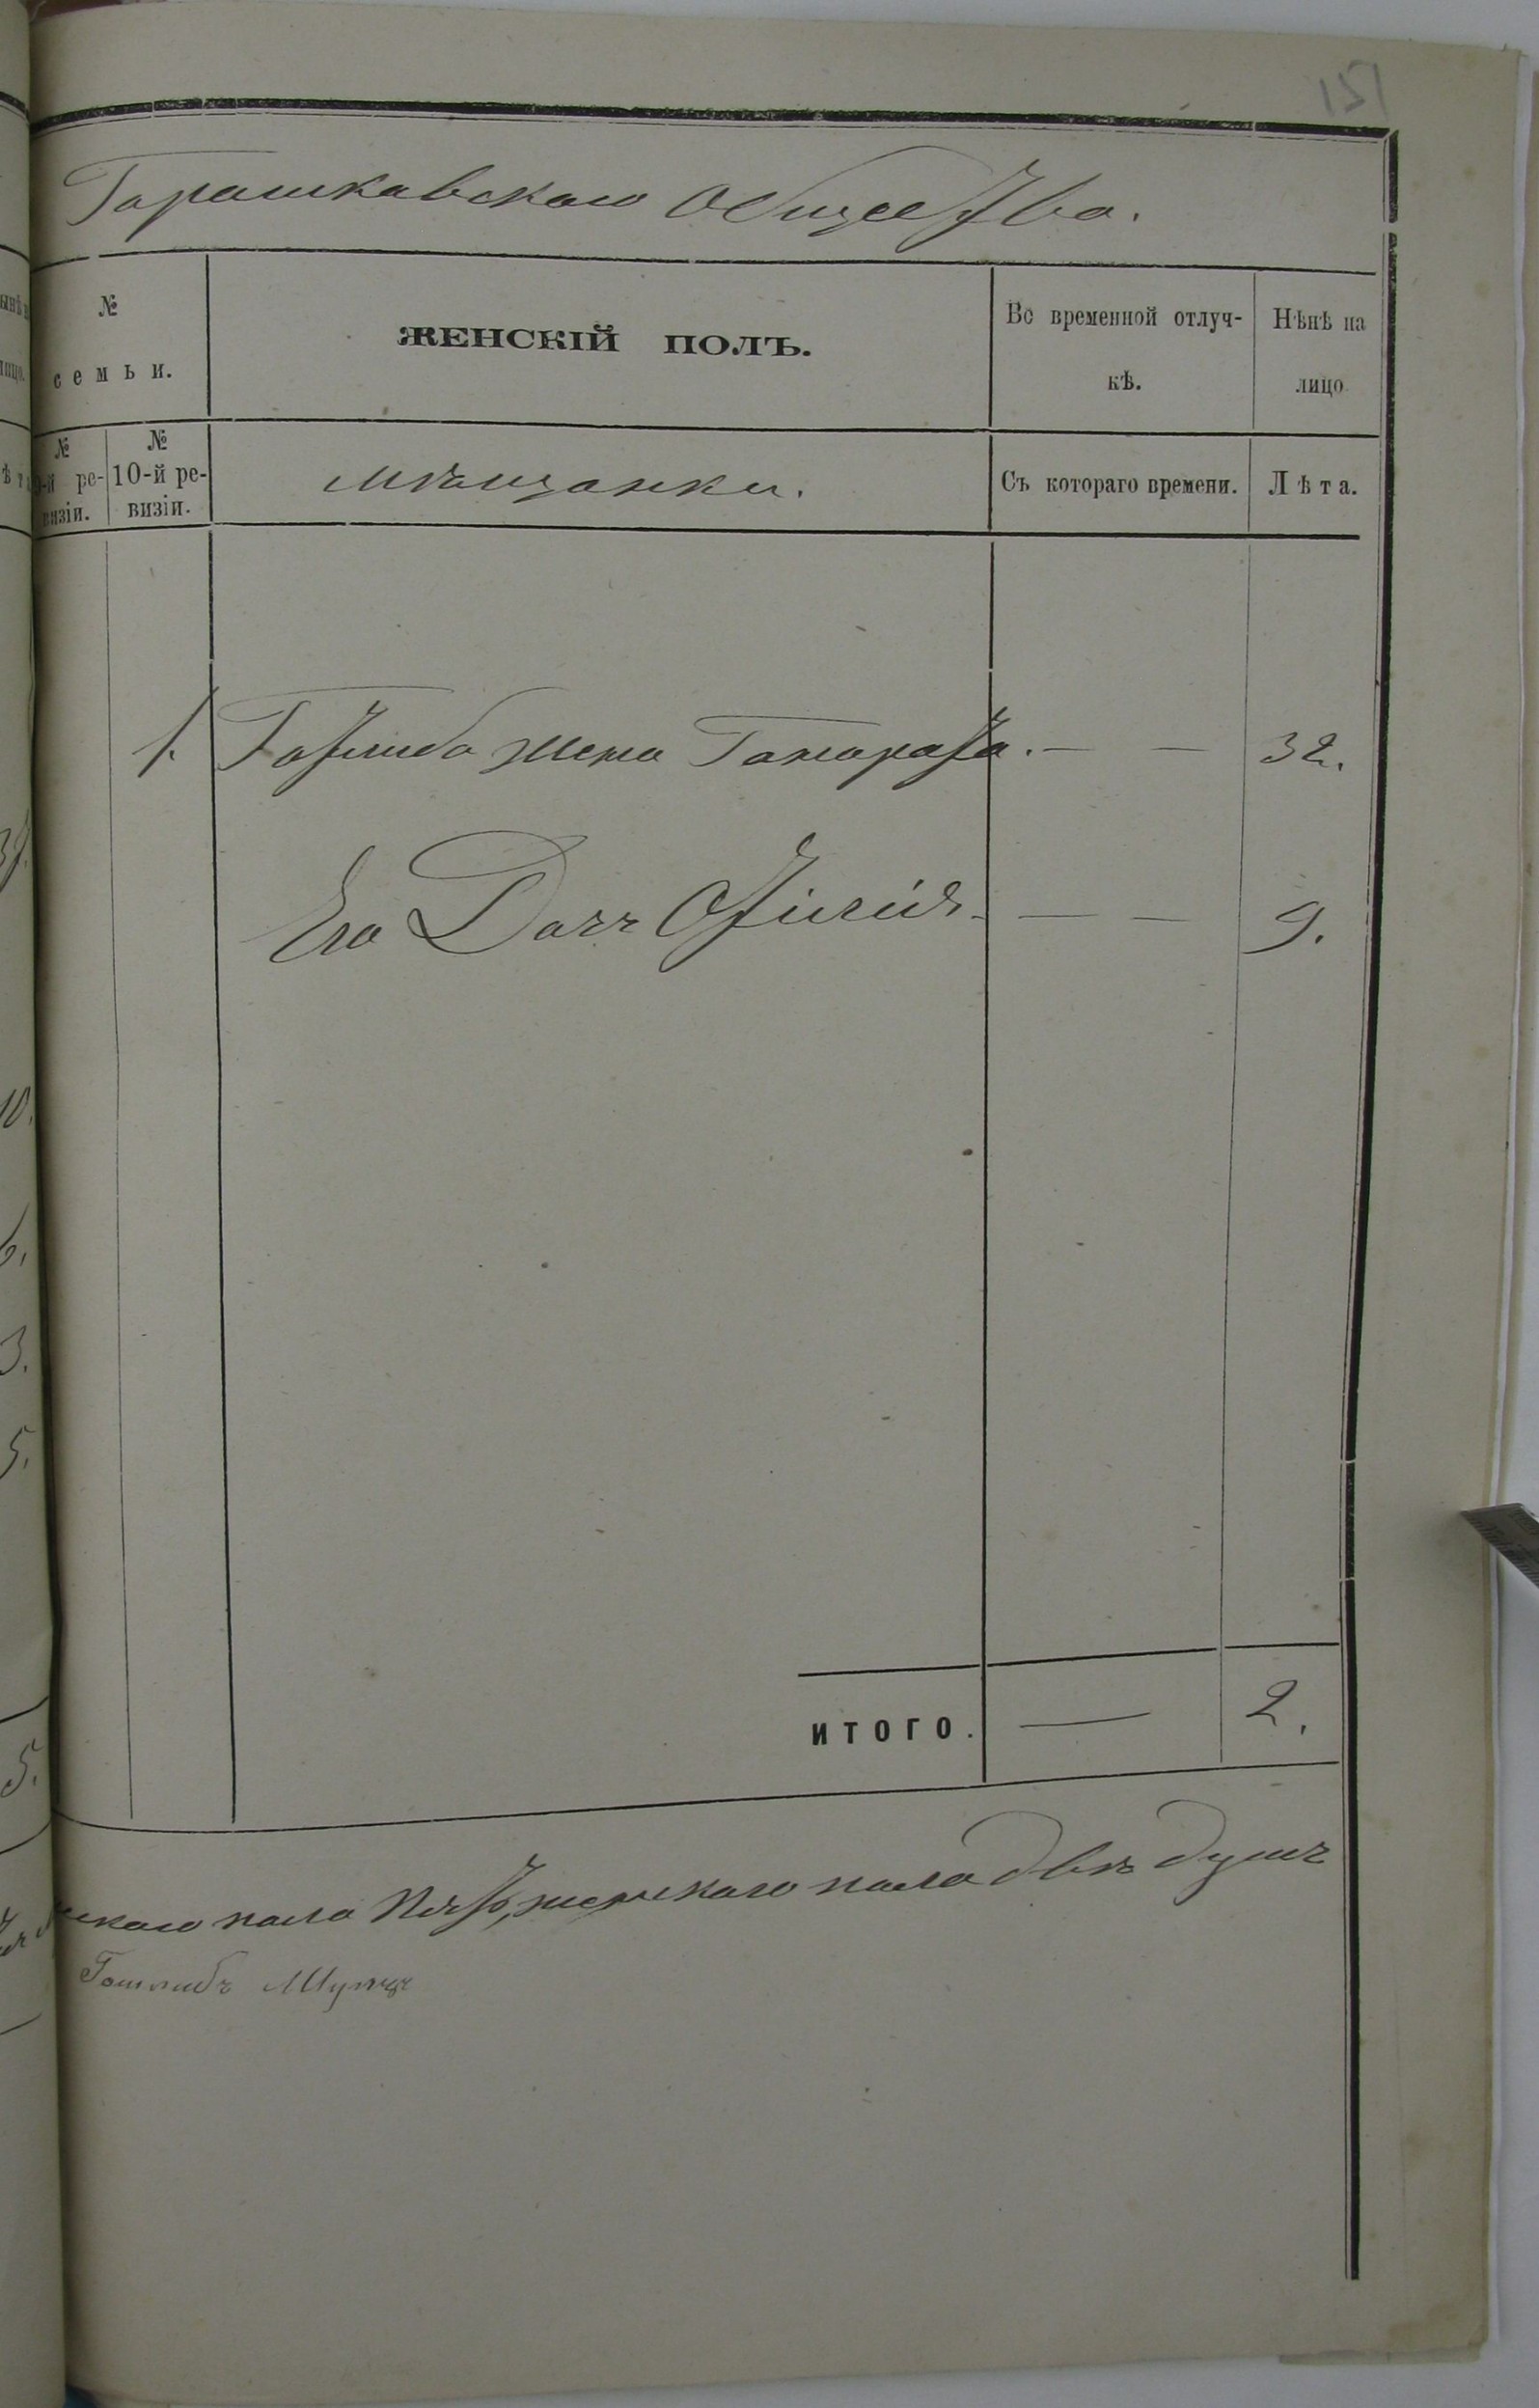 151
Горошковскаго Общества.
№
семьи.
ЖЕНСКІЙ ПОЛЪ.
Во временной отлуч-
кѣ.
Нѣнѣ на
лицо
№
9-й ре-
визіи.
№
10-й ре-
визіи.
Мѣщанки.
Съ котораго времени.
Лѣта.
1. Готлиба жена — — 32.
Его Дочь — — 9.
ИТОГО. — 2.
пола пять, женскаго пола двѣ душъ
Готлибъ Шульцъ